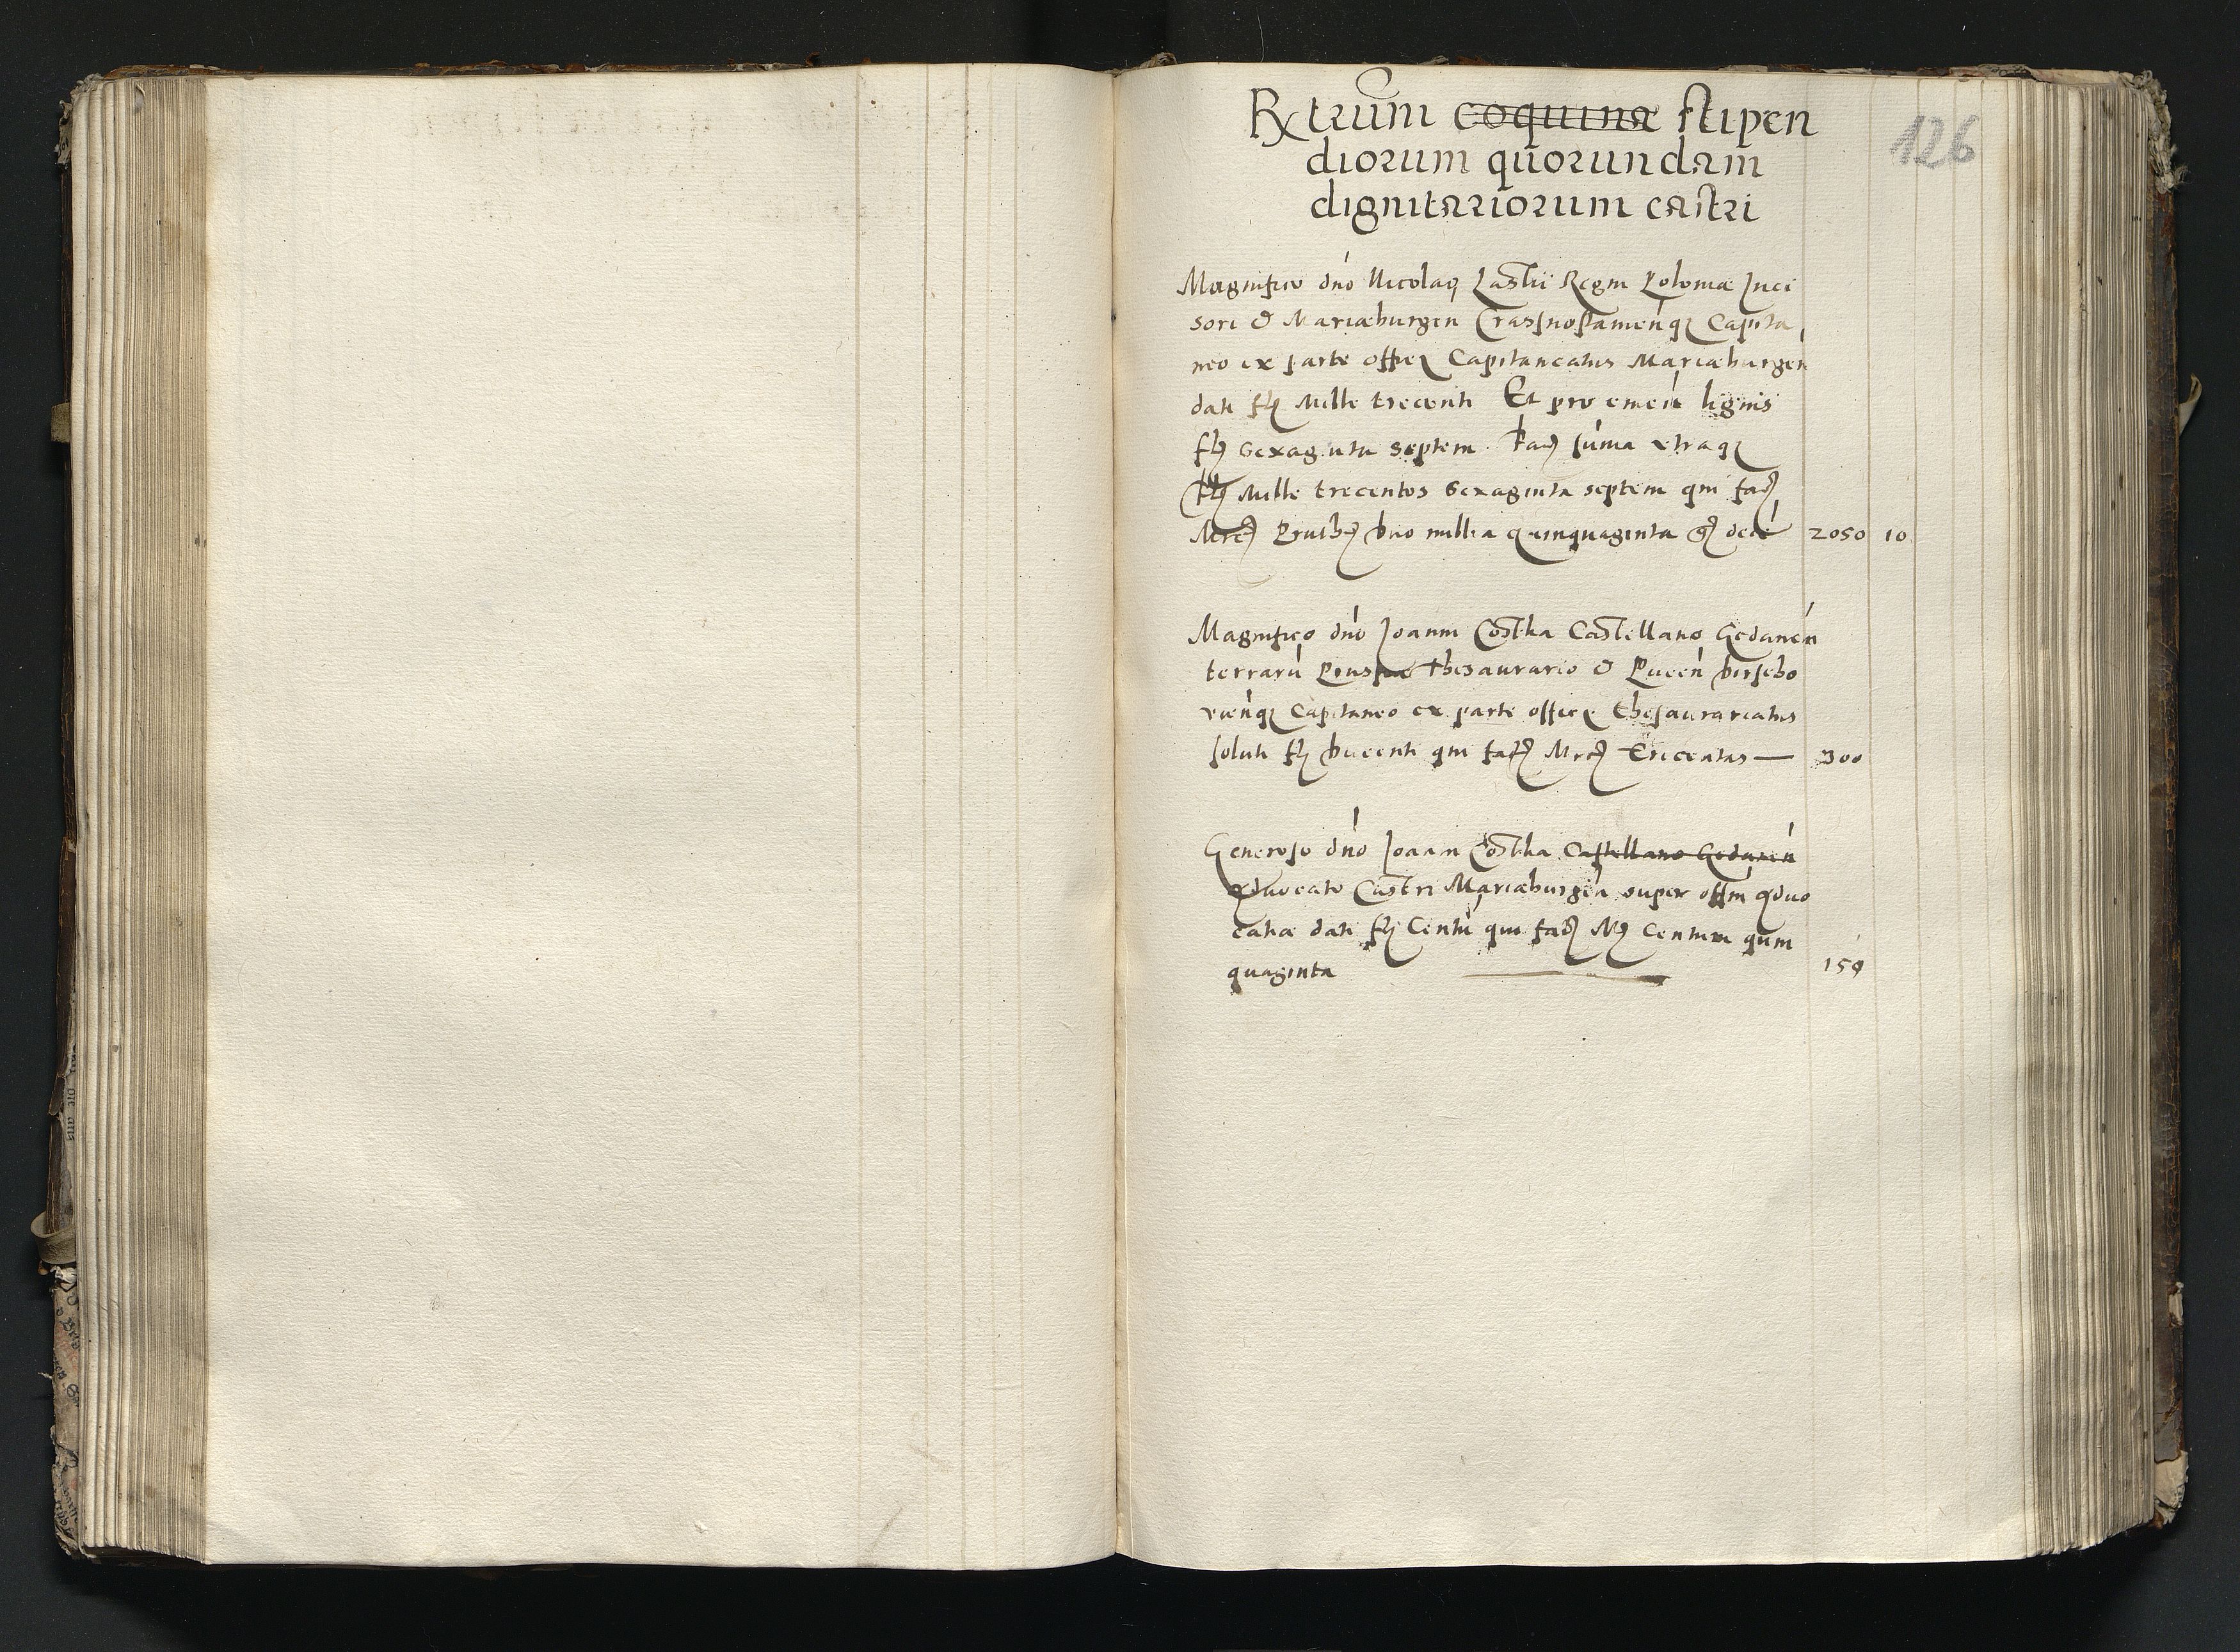 Rx trum̄ coquinæ stipen
diorum quorundam
dignitariorum castri
126
Magnifico dn̄o Nicolao Lastii Regni Poloniæ Inci
sori & Mariæburgen Crasnostamienq; Capita
neo ex parte officii Capitaneatus Mariæburgen
dati fl Mille trecenti Et pro emen lignis
fl sexaginta septem fac suma utraq;
fl Mille trecentos sexaginta septem qui fac
Mrc Pruth duo millia quinquaginta gr dece 2050 10
Magnifico dn̄o Joanni Costka Castellano Gedanen
terraru Prussiæ Thesaurario & Pucen dirscho
vienq; Capitaneo ex parte officii thesaurariatus
soluti fl ducenti qui fac Mrc Tricentas — 300
Generoso dn̄o Joanni Costka Castellano Gedanen
Advocato Castri Mariæburgen super offm advo
catiæ dati fl Centu qui fac M Centum quin
quaginta 150